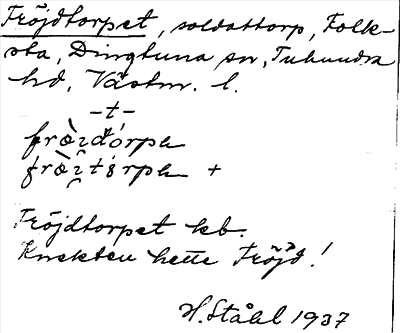 Fröjdtorpet, soldattorp, Folk-
sta, Dingtuna sn, Tuhundra
hd, Västm. l.
-t-
frö̀i̯dórpe
frö̀i̯tórpe +
Fröjdtorpet kb.
Knekten hette Fröjd!
H. Ståhl 1937